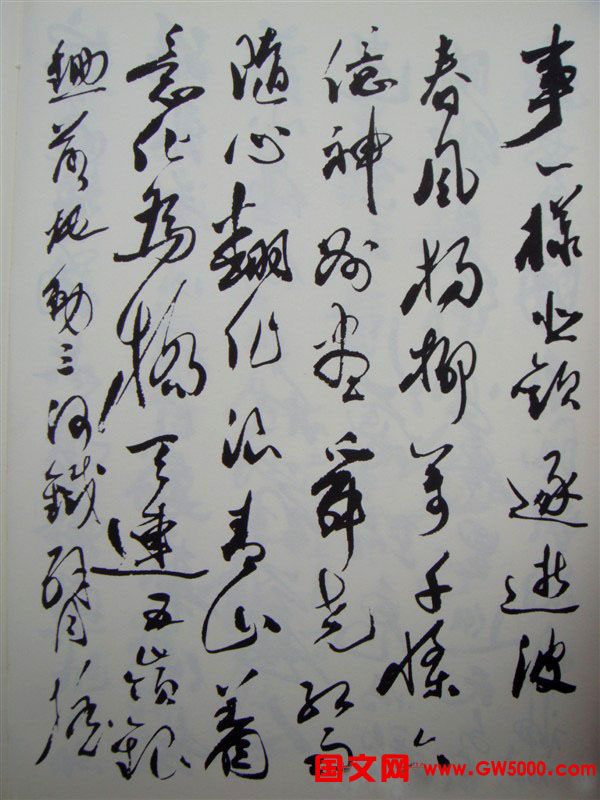 事一樣悲歡逐逝波
春風楊柳萬千條六
億神州盡舜堯紅雨
隨心翻作浪青山著
意化為橋天連五嶺銀
鋤落地動三河鐵臂搖
国文网 www.GW5000.com